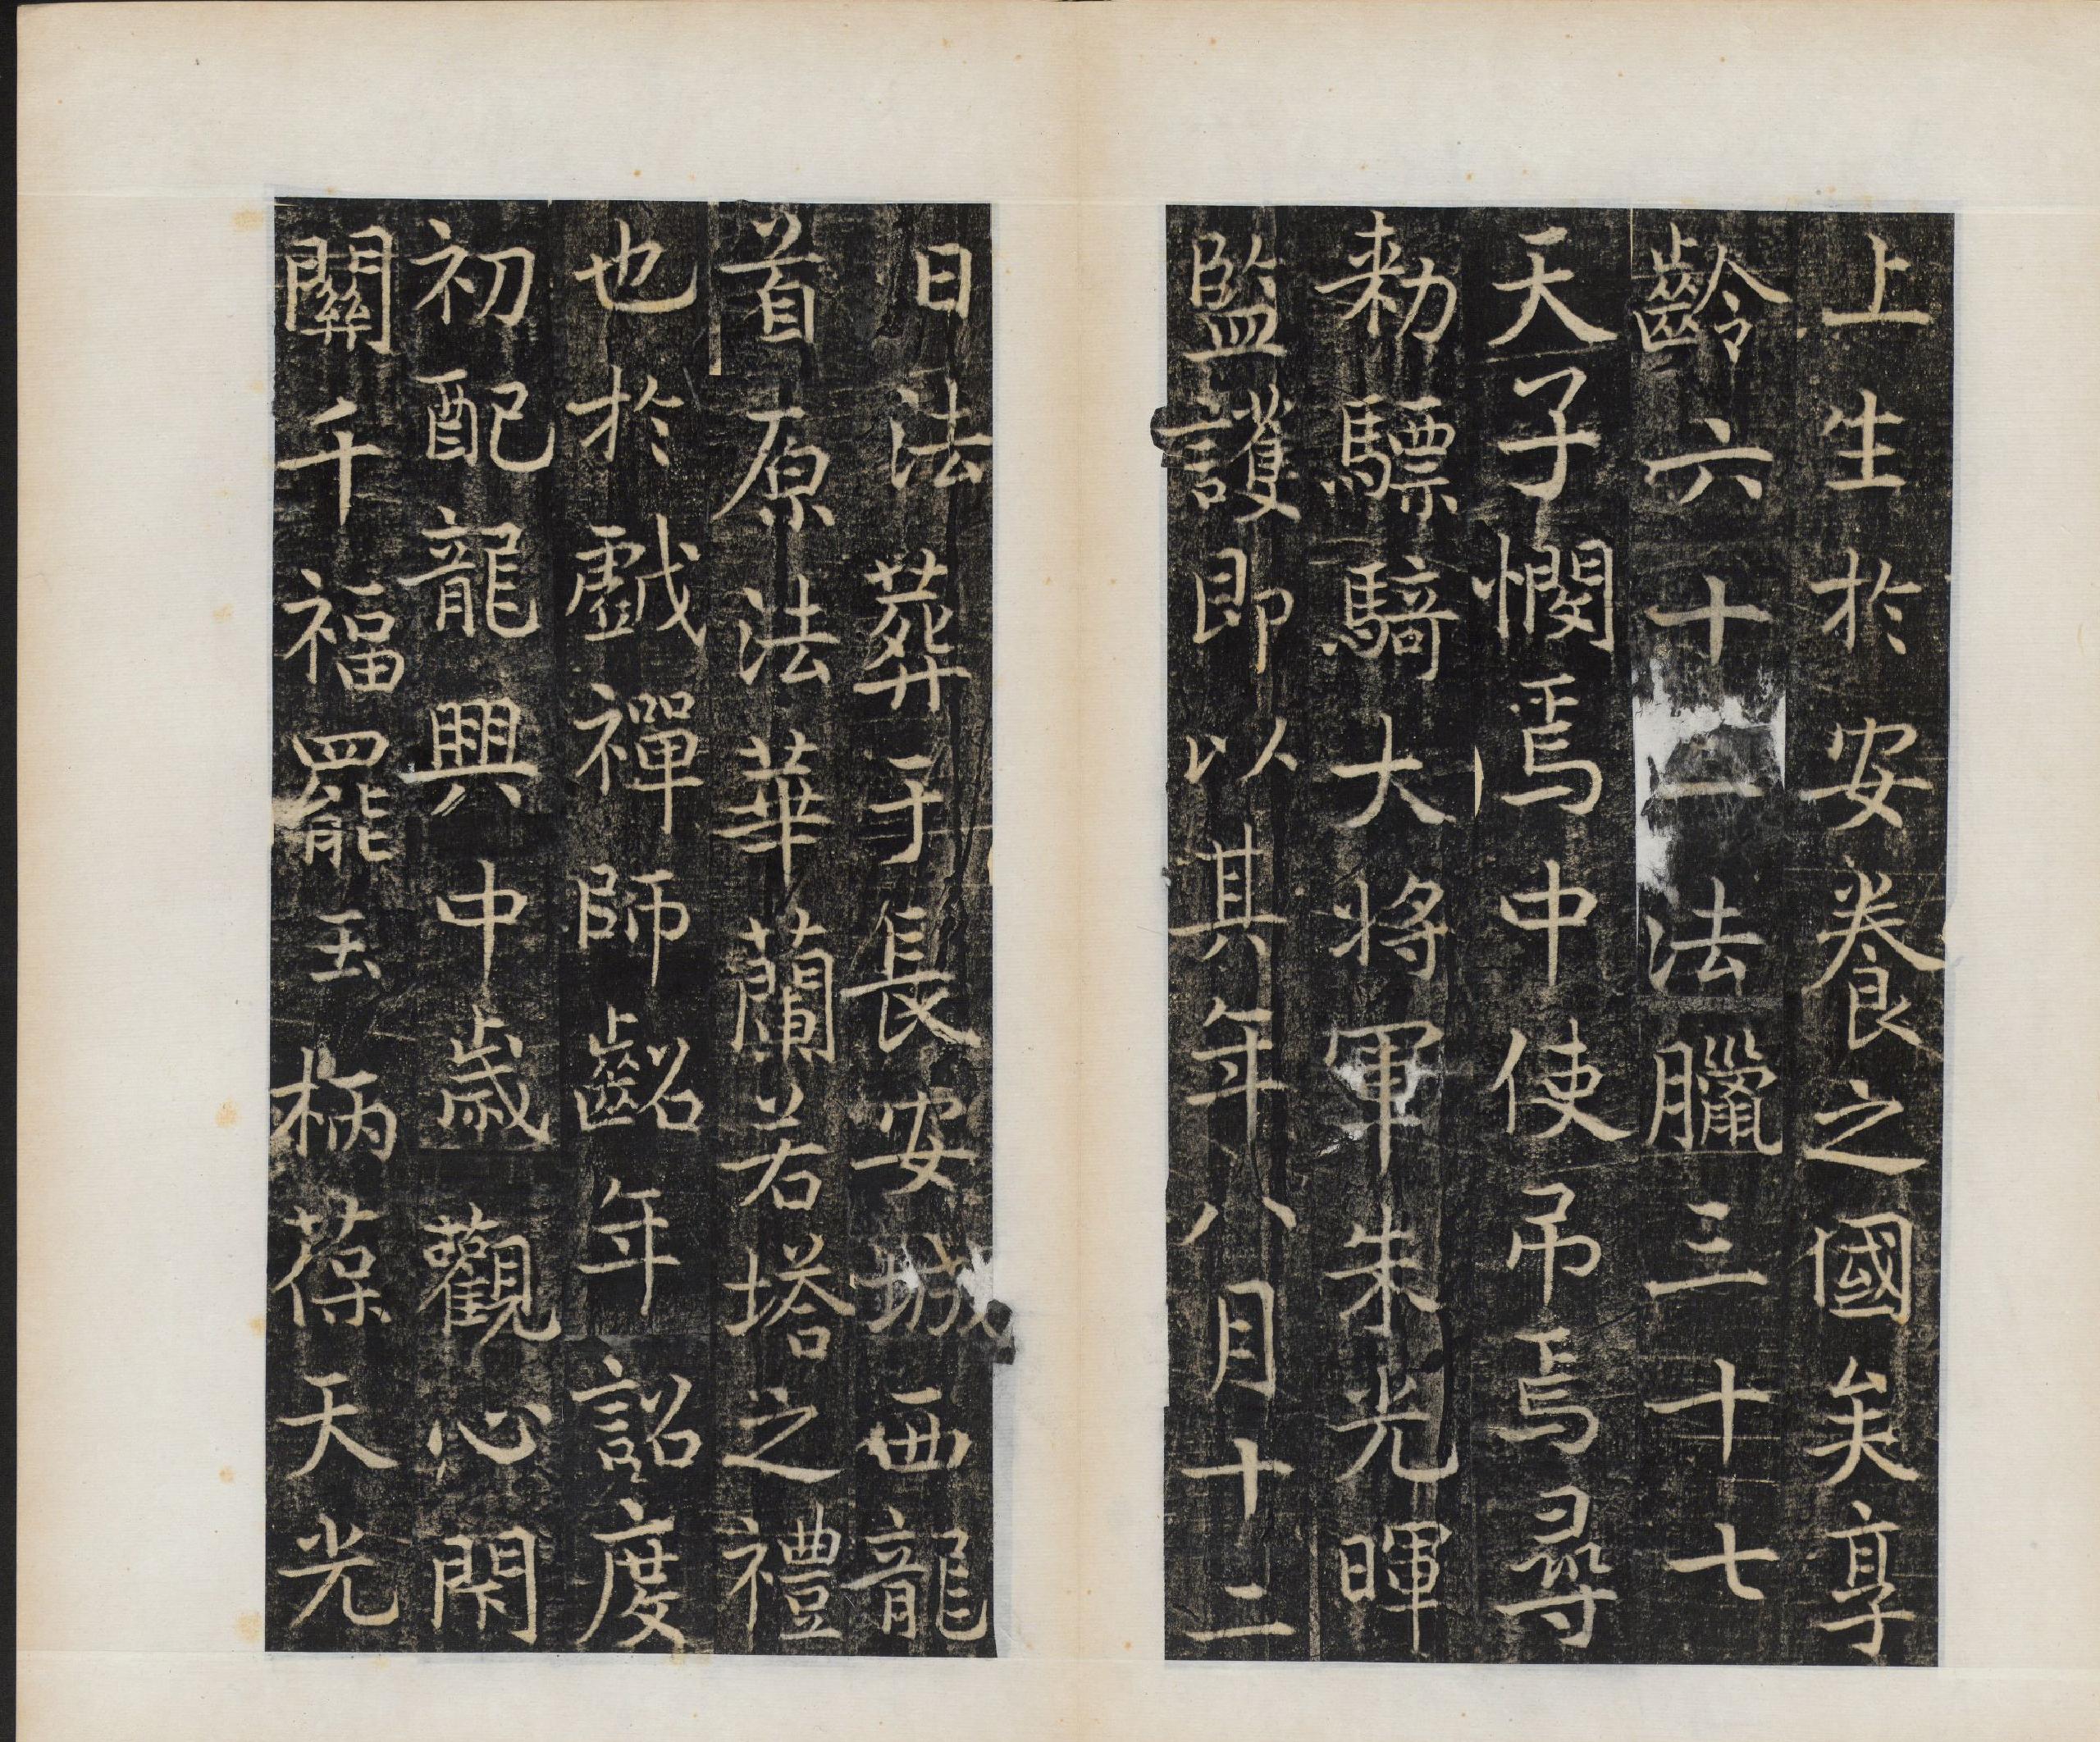 上生於安養之國矣享
齡六十二法臘三十七
天子憫焉中使弔焉尋
勑驃騎大將軍朱光暉
監護即以其年八月十二
日法葬于長安城西龍
首原法華蘭若塔之禮
也於戲禪師齠年詔度
初配龍興中歲觀心閑
關千福罷玉柄葆天光